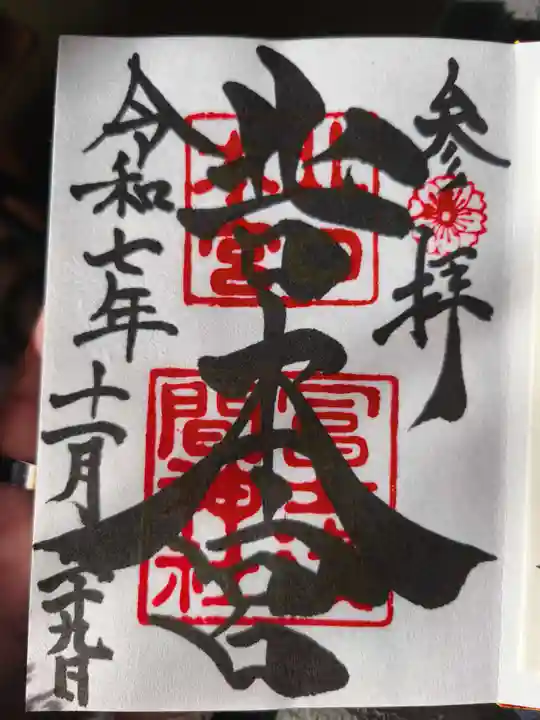 参拝
北口本宮
北口
本宮
冨士浅
間神社
令和七年十一月二十九日